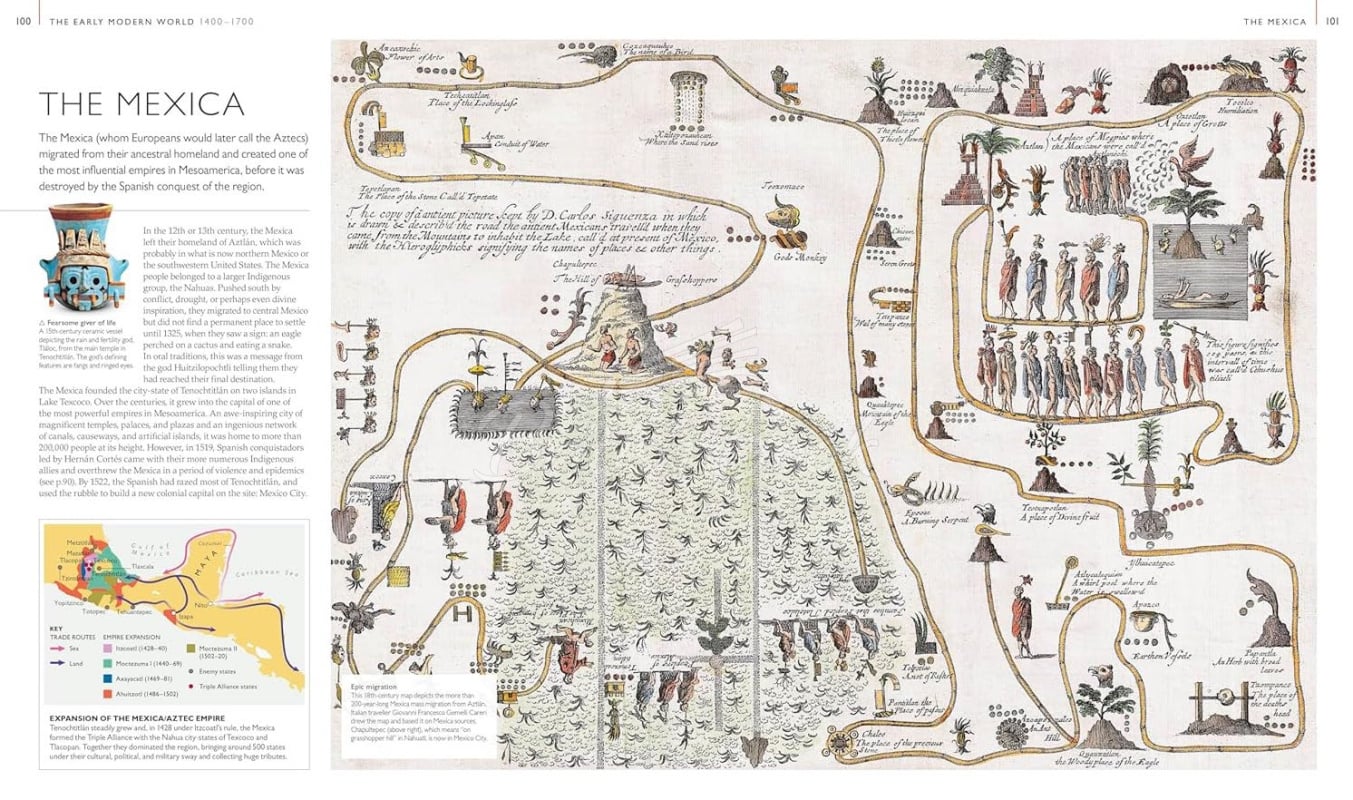 100 THE EARLY MODERN WORLD 1400–1700
THE MEXICA 101
THE MEXICA
The Mexica (whom Europeans would later call the Aztecs)
migrated from their ancestral homeland and created one of
the most influential empires in Mesoamerica, before it was
destroyed by the Spanish conquest of the region.
In the 12th or 13th century, the Mexica
left their homeland of Aztlán, which was
probably in what is now northern Mexico or
the southwestern United States. The Mexica
people belonged to a larger Indigenous
group, the Nahuas. Pushed south by
conflict, drought, or perhaps even divine
inspiration, they migrated to central Mexico
but did not find a permanent place to settle
until 1325, when they saw a sign: an eagle
perched on a cactus and eating a snake.
In oral traditions, this was a message from
the god Huitzilopochtli telling them they
had reached their final destination.
△ Fearsome giver of life
A 15th-century ceramic vessel
depicting the rain and fertility god,
Tláloc, from the main temple in
Tenochtitlán. The god's defining
features are fangs and ringed eyes.
The Mexica founded the city-state of Tenochtitlán on two islands in
Lake Texcoco. Over the centuries, it grew into the capital of one of
the most powerful empires in Mesoamerica. An awe-inspiring city of
magnificent temples, palaces, and plazas and an ingenious network
of canals, causeways, and artificial islands, it was home to more than
200,000 people at its height. However, in 1519, Spanish conquistadors
led by Hernán Cortés came with their more numerous Indigenous
allies and overthrew the Mexica in a period of violence and epidemics
(see p.90). By 1522, the Spanish had razed most of Tenochtitlán, and
used the rubble to build a new colonial capital on the site: Mexico City.
Gulf of
Mexico
Cozumel
MAYA
Caribbean Sea
Metztitlán
Tlacopan
Texcoco
Tlaxcala
Yopitzinco
Tututepec
Tehuantepec
Nito
Izapa
KEY
TRADE ROUTES
Sea
Land
EMPIRE EXPANSION
Itzcoatl (1428–40)
Moctezuma I (1440–69)
Axayacatl (1469–81)
Ahuitzotl (1486–1502)
Moctezuma II
(1502–20)
Enemy states
Triple Alliance states
EXPANSION OF THE MEXICA/AZTEC EMPIRE
Tenochtitlán steadily grew and, in 1428 under Itzcoatl's rule, the Mexica
formed the Triple Alliance with the Nahua city-states of Texcoco and
Tlacopan. Together they dominated the region, bringing around 500 states
under their cultural, political, and military sway and collecting huge tributes.
Flower of Arts
The name of a Bird
Place of the Lookinglass
Apan
Conduit of Water
Where the Sand rises
The place of
Thistle flowers
Humiliation
A place of Grotts
A place of Megpies where
the Mexicans were call'd
Aztlan
The Place of the Stone Call'd Tepetate
The copy of a antient picture kept by D. Carlos Siguenza in which
is drawn & describ'd the road the antient Mexicans travell'd when they
came from the Mountains to inhabit the Lake, call'd at present of Mexico,
with the Hieroglyphicks signifying the names of places & other things.
Gods Monkey
Chapultepec
The Hill of Grashoppers
Seven Grotts
Wal of many stones
Mountain of the
Eagle
This figure signifies
A Burning Serpent
A place of Divine fruit
A whirl pool where the
Water is swallow'd
Apazco
Earthen Vessels
An Herb with broad
leaves
Tzompanco
The place of
the deaths
head
Chalco
The place of the precious
Stone
An Ant
Hill
the Woody place of the Eagle
Epic migration
This 18th-century map depicts the more than
200-year-long Mexica mass migration from Aztlán.
Italian traveller Giovanni Francesco Gemelli Careri
drew the map and based it on Mexica sources.
Chapultepec (above right), which means "on
grasshopper hill" in Nahuatl, is now in Mexico City.